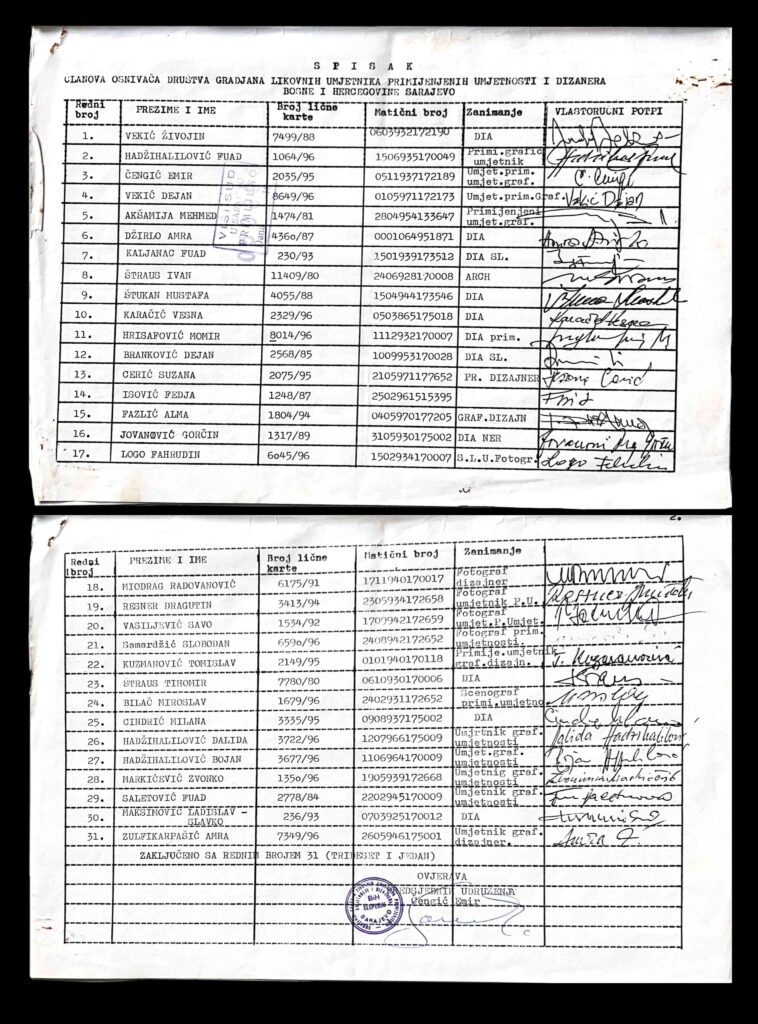 S P I S A K
CLANOVA OSNIVAČA DRUŠTVA GRADJANA LIKOVNIH UMJETNIKA PRIMIJENJENIH UMJETNOSTI I DIZANERA
BOSNE I HERCEGOVINE SARAJEVO
Redni broj PREZIME I IME Broj lične karte Matični broj Zanimanje VLASTORUČNI POTPI
1. VEKIĆ ŽIVOJIN 7499/88 0603932172190 DIA
2. HADŽIHALILOVIĆ FUAD 1064/96 1506935170049 Primi.grafič umjetnik
3. ČENGIĆ EMIR 2035/95 0511937172189 Umjet.prim. umjet.graf. Č. Emir
4. VEKIĆ DEJAN 8649/96 0105971172173 Umjet.prim.Graf. Vekić Dejan
5. AKŠAMIJA MEHMED 1474/81 2804954133647 Primijenjeni umjet.graf.
6. DŽIRLO AMRA 436o/87 0001064951871 DIA
7. KALJANAC FUAD 230/93 1501939173512 DIA SL.
8. ŠTRAUS IVAN 11409/80 2406928170008 ARCH
9. ŠTUKAN MUSTAFA 4055/88 1504944173546 DIA
10. KARAČIĆ VESNA 2329/96 0503865175018 DIA
11. HRISAFOVIĆ MOMIR 8014/96 1112932170007 DIA prim.
12. BRANKOVIĆ DEJAN 2568/85 1009953170028 DIA SL.
13. CERIĆ SUZANA 2075/95 2105971177652 PR. DIZAJNER
14. ISOVIĆ FEDJA 1248/87 2502961515395
15. FAZLIĆ ALMA 1804/94 0405970177205 GRAF.DIZAJN
16. JOVANOVIĆ GORČIN 1317/89 3105930175002 DIA NER
17. LOGO FAHRUDIN 6o45/96 1502934170007 S.L.U.Fotogr.
2.
Redni broj PREZIME I IME Broj lične karte Matični broj Zanimanje
18. MIODRAG RADOVANOVIĆ 6175/91 1711940170017 Fotograf dizajner
19. RESNER DRAGUTIN 3413/94 2305934172658 Fotograf umjetnik P.U.
20. VASILJEVIĆ SAVO 1534/92 1709942172659 Fotograf umjet.P.Umjet.
21. Samardžić SLOBODAN 659o/96 2408942172652 Fotograf prim. umjetnosti.
22. KUZMANOVIĆ TOMISLAV 2149/95 0101940170118 Primije.umjetnik graf.dizajn.
23. STRAUS TIHOMIR 7780/80 0610930170006 DIA
24. BILAĆ MIROSLAV 1679/96 2402931172652 Scenograf primi.umjetno
25. CINDRIĆ MILANA 3335/95 0908937175002 DIA
26. HADŽIHALILOVIĆ DALIDA 3722/96 1207966175009 Umjrtnik graf. umjetnosti Dalida Hadžihalilović
27. HADŽIHALILOVIĆ BOJAN 3677/96 1106964170009 Umjet.graf. umjetnosti
28. MARKIĆEVIĆ ZVONKO 135o/96 1905939172668 Umjetnig graf umjetnosti
29. SALETOVIĆ FUAD 2778/84 2202945170009 Umjetnik graf. umjetnosti
30. MAKSIMOVIĆ LADISLAV - SLAVKO 236/93 0703925170012 DIA
31. ZULFIKARPAŠIĆ AMRA 7349/96 2605946175001 Umjetnik graf. dizajner. Amra Z.
ZAKLJUČENO SA REDNIM BROJEM 31 (TRIDESET I JEDAN)
OVJERAVA
EDSJEDNIK UDRUŽENJA
Čengić Emir
BiH
SARAJEVO